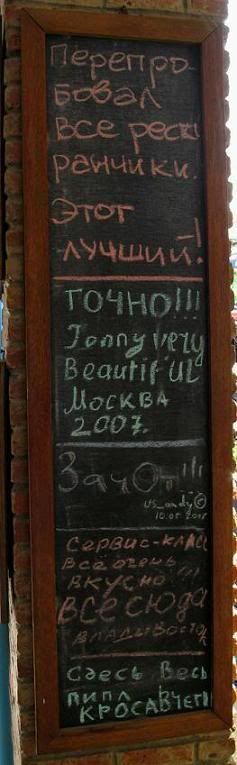 Перепро-
бовал
все рест
ранчики.
Этот
лучший!
ТОЧНО!!!
Tonny very
Beautiful
МОСКВА
2007.
Зачот!!!
us_andy©
10.05.2008
Сервис-класс
Всё очень
вкусно!!!
ВСЕ СЮДА
ВЛАДИВОСТОК
Сдесь Весь
ПИПЛ
КРОСАВЧЕГИ